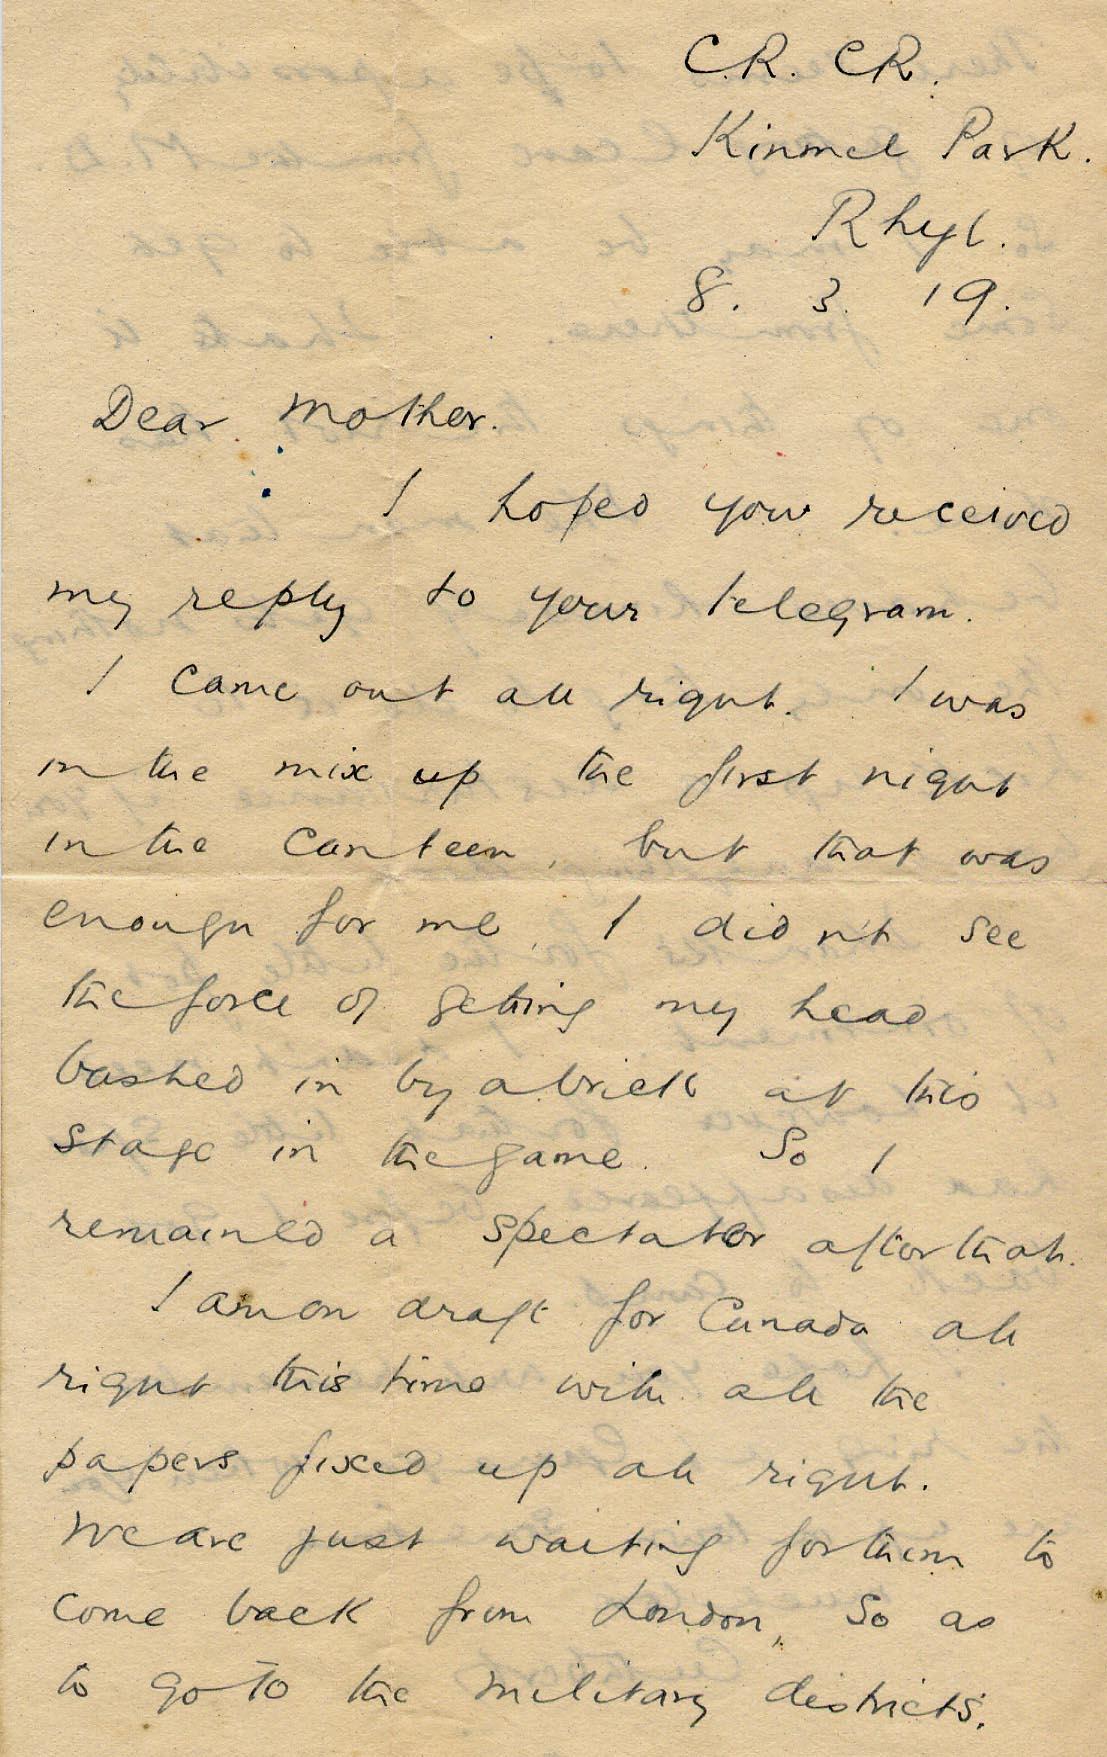 C.R. CR.
Kinmel Park.
Rhyl.
8. 3. 19.
Dear Mother.
I hoped you received
my reply to your telegram.
I came out all right. I was
in the mix up the first night
in the canteen, but that was
enough for me, I didn't see
the force of getting my head
bashed in by a brick at this
stage in the game. So I
remained a spectator after that.
I am on draft for Canada all
right this time with all the
papers fixed up all right.
We are just waiting for them to
come back from London, so as
to go to the military districts.